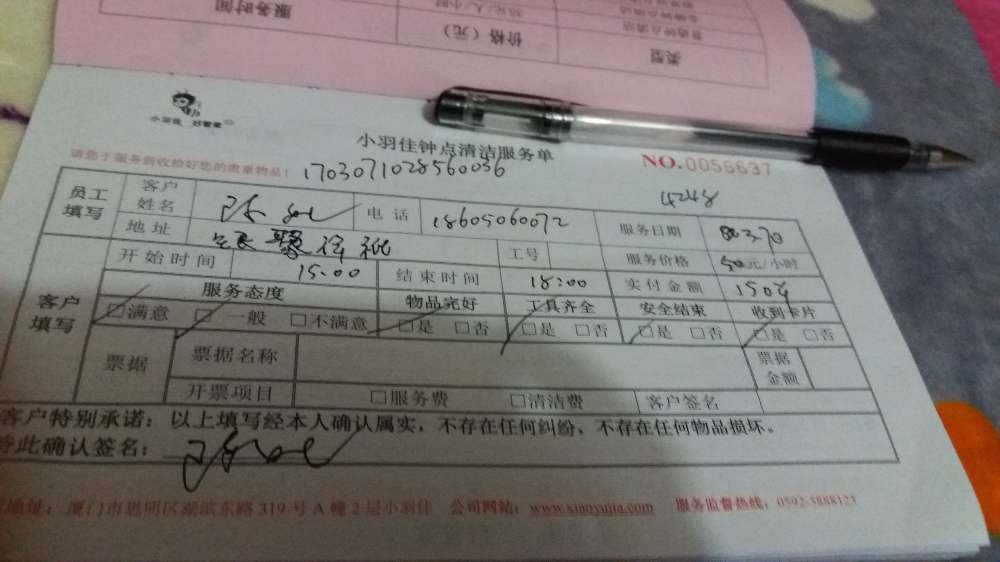 服务时间
价格（元）
类型
35元/人/小时
普通钟点清洁
小羽佳 好管家
小羽佳钟点清洁服务单
请您于服务前收捡好您的贵重物品！
1703071028560056
NO.0056637
4248
员工填写
客户姓名
电话
18605060072
服务日期
地址
工号
服务价格
50元/小时
开始时间
15:00
结束时间
18:00
实付金额
150元
客户填写
服务态度
物品完好
工具齐全
安全结束
收到卡片
□满意 □一般 □不满意
□是 □否
□是 □否
□是 □否
□是 □否
票据
票据名称
票据金额
开票项目
□服务费
□清洁费
客户签名
客户特别承诺：以上填写经本人确认属实，不存在任何纠纷，不存在任何物品损坏。
特此确认签名：
地址：厦门市思明区湖滨东路319号A幢2层小羽佳 公司网站：www.xiaoyujia.com 服务监督热线：0592-5888123